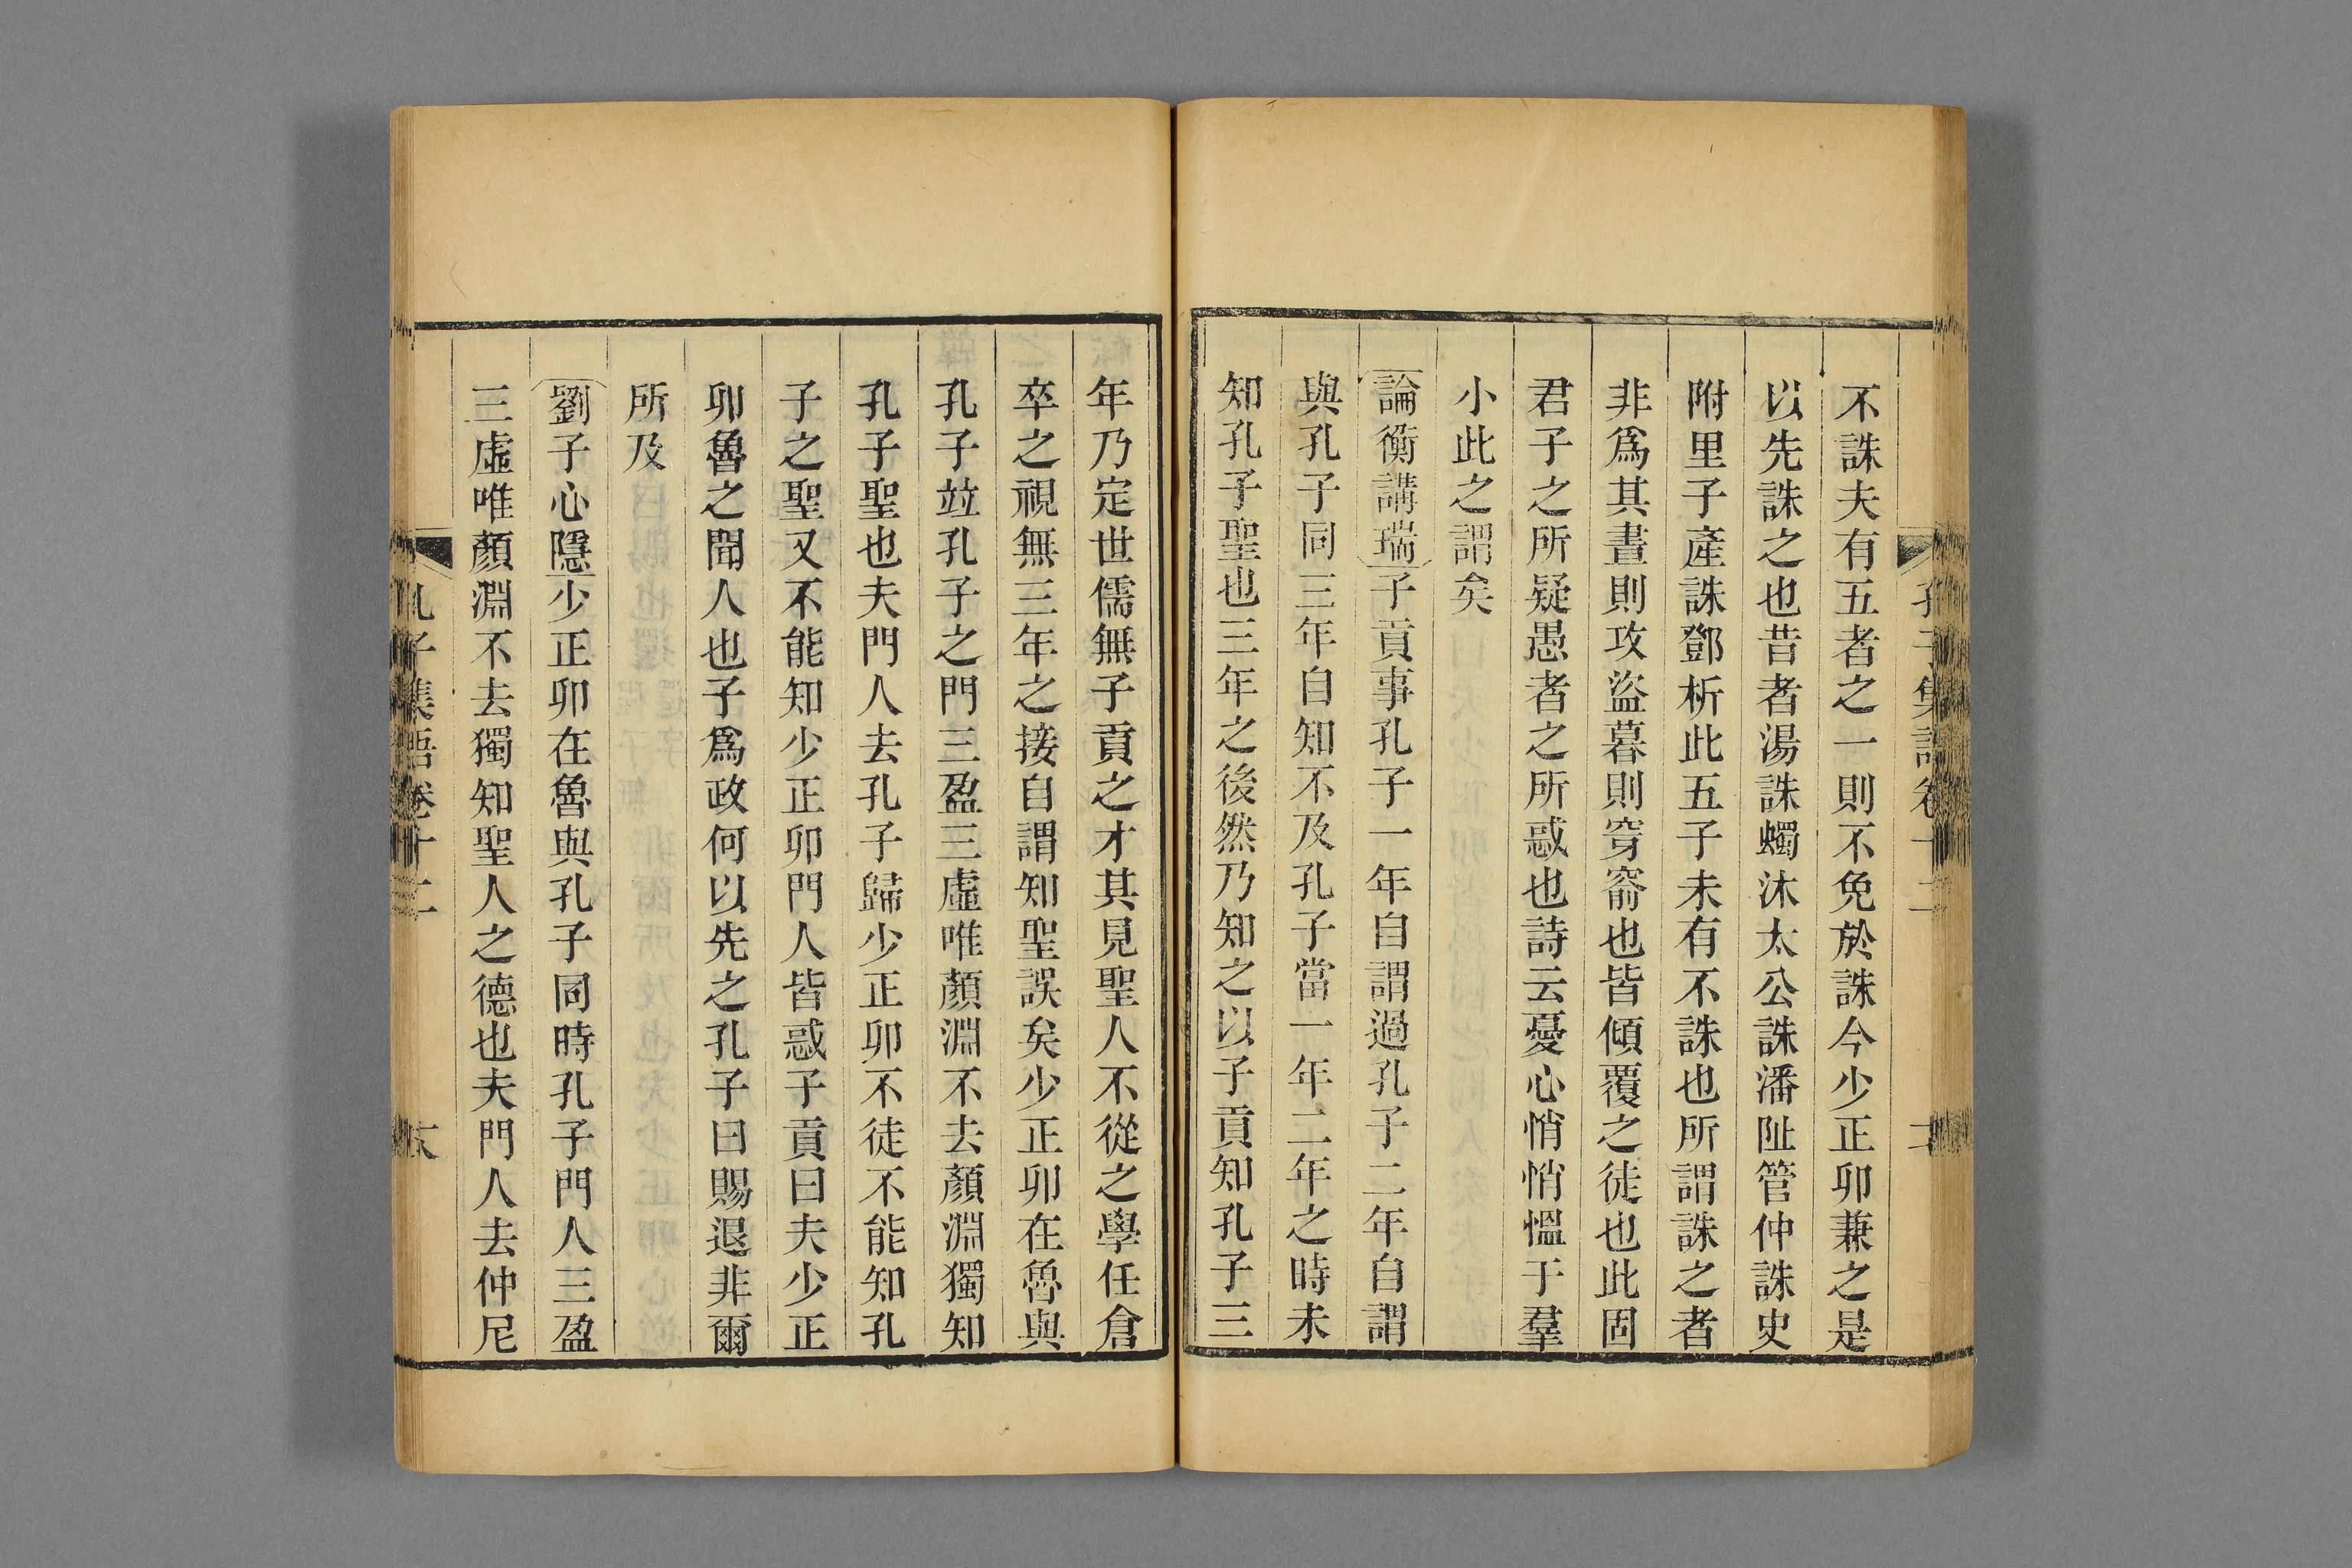 不誅夫有五者之一則不免於誅今少正卯兼之是
以先誅之也昔者湯誅蠋沐太公誅潘阯管仲誅史
附里子產誅鄧析此五子未有不誅也所謂誅之者
非爲其晝則攻盜暮則穿窬也皆傾覆之徒也此固
君子之所疑愚者之所惑也詩云憂心悄悄慍于羣
小此之謂矣
論衡講瑞子貢事孔子一年自謂過孔子二年自謂
與孔子同三年自知不及孔子當一年二年之時未
知孔子聖也三年之後然乃知之以子貢知孔子三
年乃定世儒無子貢之才其見聖人不從之學任倉
卒之視無三年之接自謂知聖誤矣少正卯在魯與
孔子竝孔子之門三盈三虛唯顏淵不去顏淵獨知
孔子聖也夫門人去孔子歸少正卯不徒不能知孔
子之聖又不能知少正卯門人皆惑子貢曰夫少正
卯魯之聞人也子爲政何以先之孔子曰賜退非爾
所及
劉子心隱少正卯在魯與孔子同時孔子門人三盈
三虛唯顏淵不去獨知聖人之德也夫門人去仲尼
孔子集語卷十二